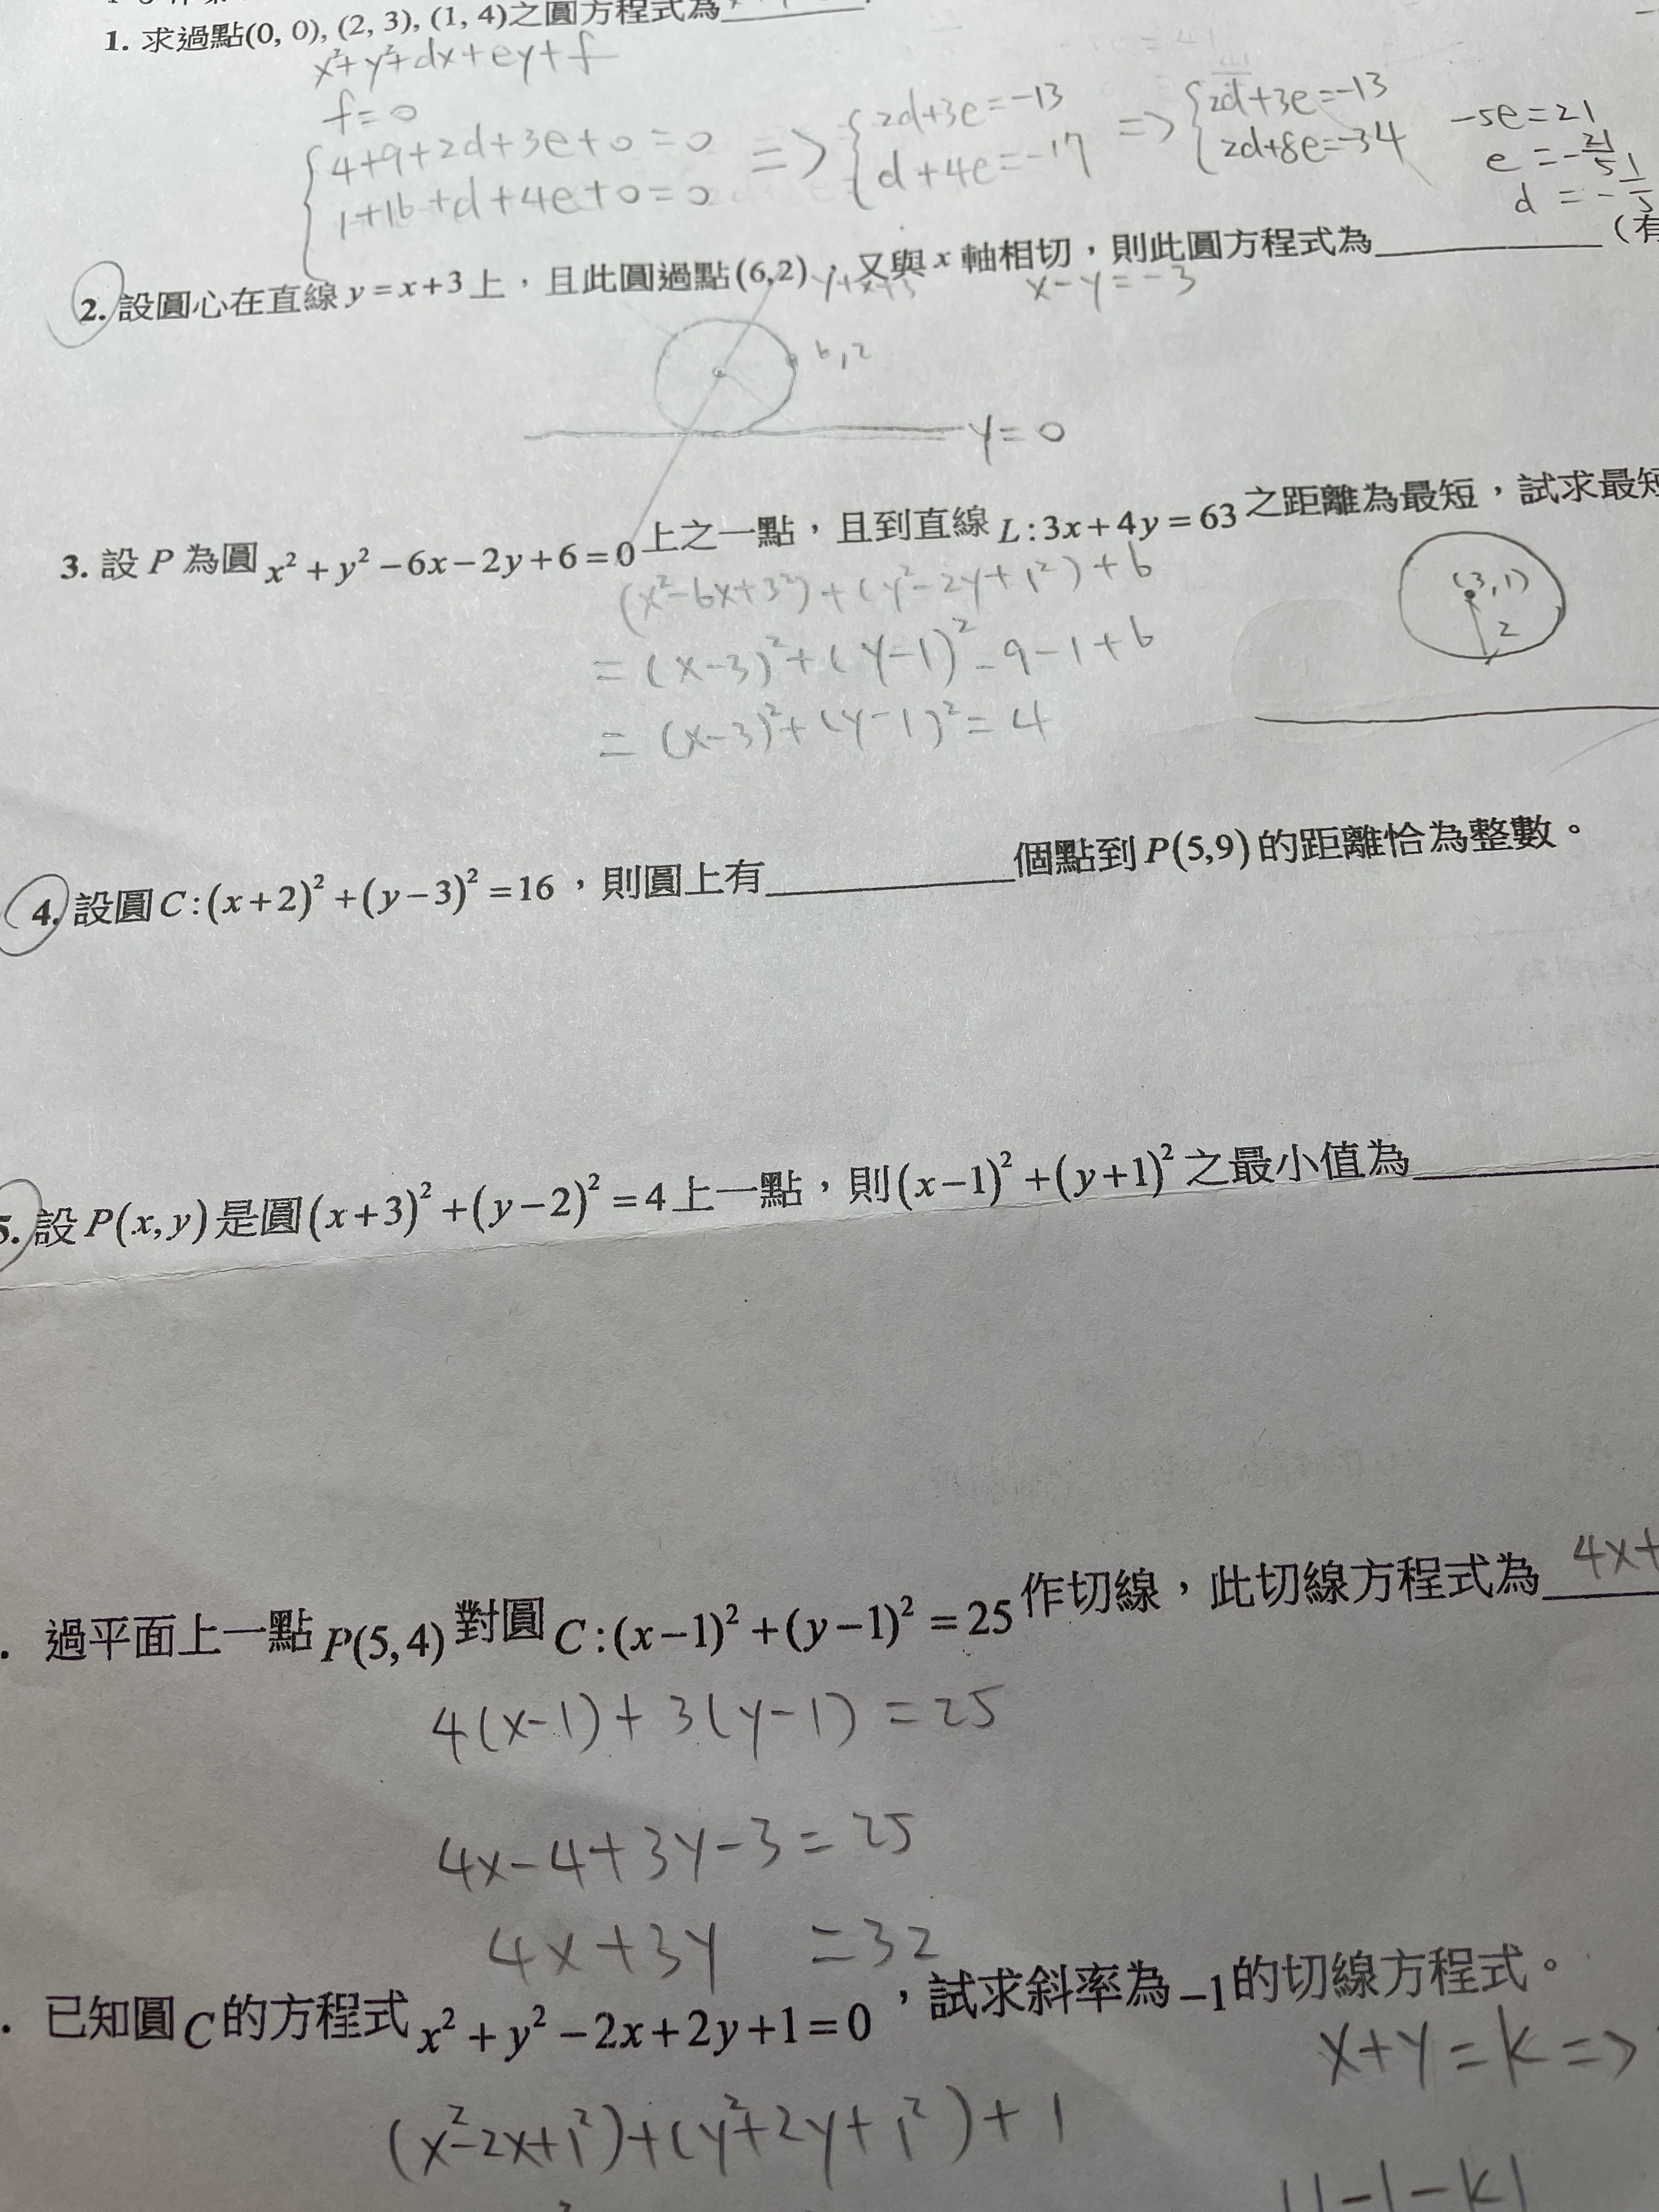 1. 求過點(0, 0), (2, 3), (1, 4)之圓方程式為
x²+y²+dx+ey+f
f=0
{4+9+2d+3e+0=0 => {2d+3e=-13 => {2d+3e=-13 -5e=21
1+16+d+4e+0=0 d+4e=-17 2d+8e=-34 e=-21/5
d=-1/5
2. 設圓心在直線 y=x+3 上，且此圓過點(6,2)，又與 x 軸相切，則此圓方程式為__________(有
x-y=-3
6,2
y=0
3. 設 P 為圓 x²+y²-6x-2y+6=0 上之一點，且到直線 L:3x+4y=63 之距離為最短，試求最短
(x²-6x+3²)+(y²-2y+1²)+6
(3,1)
=(x-3)²+(y-1)²-9-1+6
2
=(x-3)²+(y-1)²=4
4. 設圓C:(x+2)²+(y-3)²=16，則圓上有__________個點到P(5,9)的距離恰為整數。
5. 設P(x,y)是圓(x+3)²+(y-2)²=4上一點，則(x-1)²+(y+1)²之最小值為__________
. 過平面上一點P(5,4)對圓C:(x-1)²+(y-1)²=25作切線，此切線方程式為 4x+
4(x-1)+3(y-1)=25
4x-4+3y-3=25
4x+3y =32
. 已知圓C的方程式x²+y²-2x+2y+1=0，試求斜率為-1的切線方程式。
x+y=k=>
(x²-2x+1²)+(y²+2y+1²)+1
|1-1-k|